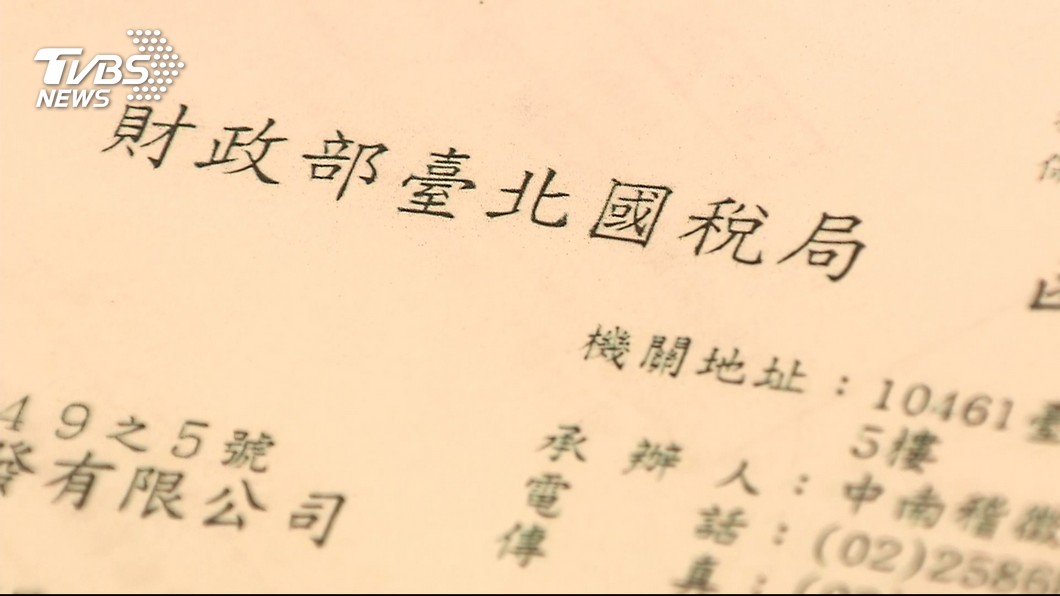 TVBS
NEWS
財政部臺北國稅局
函
機關地址：10461臺
5樓
49之5號
發有限公司
承辦人：中南稽徵
電話：(02)2586
傳真：(02)